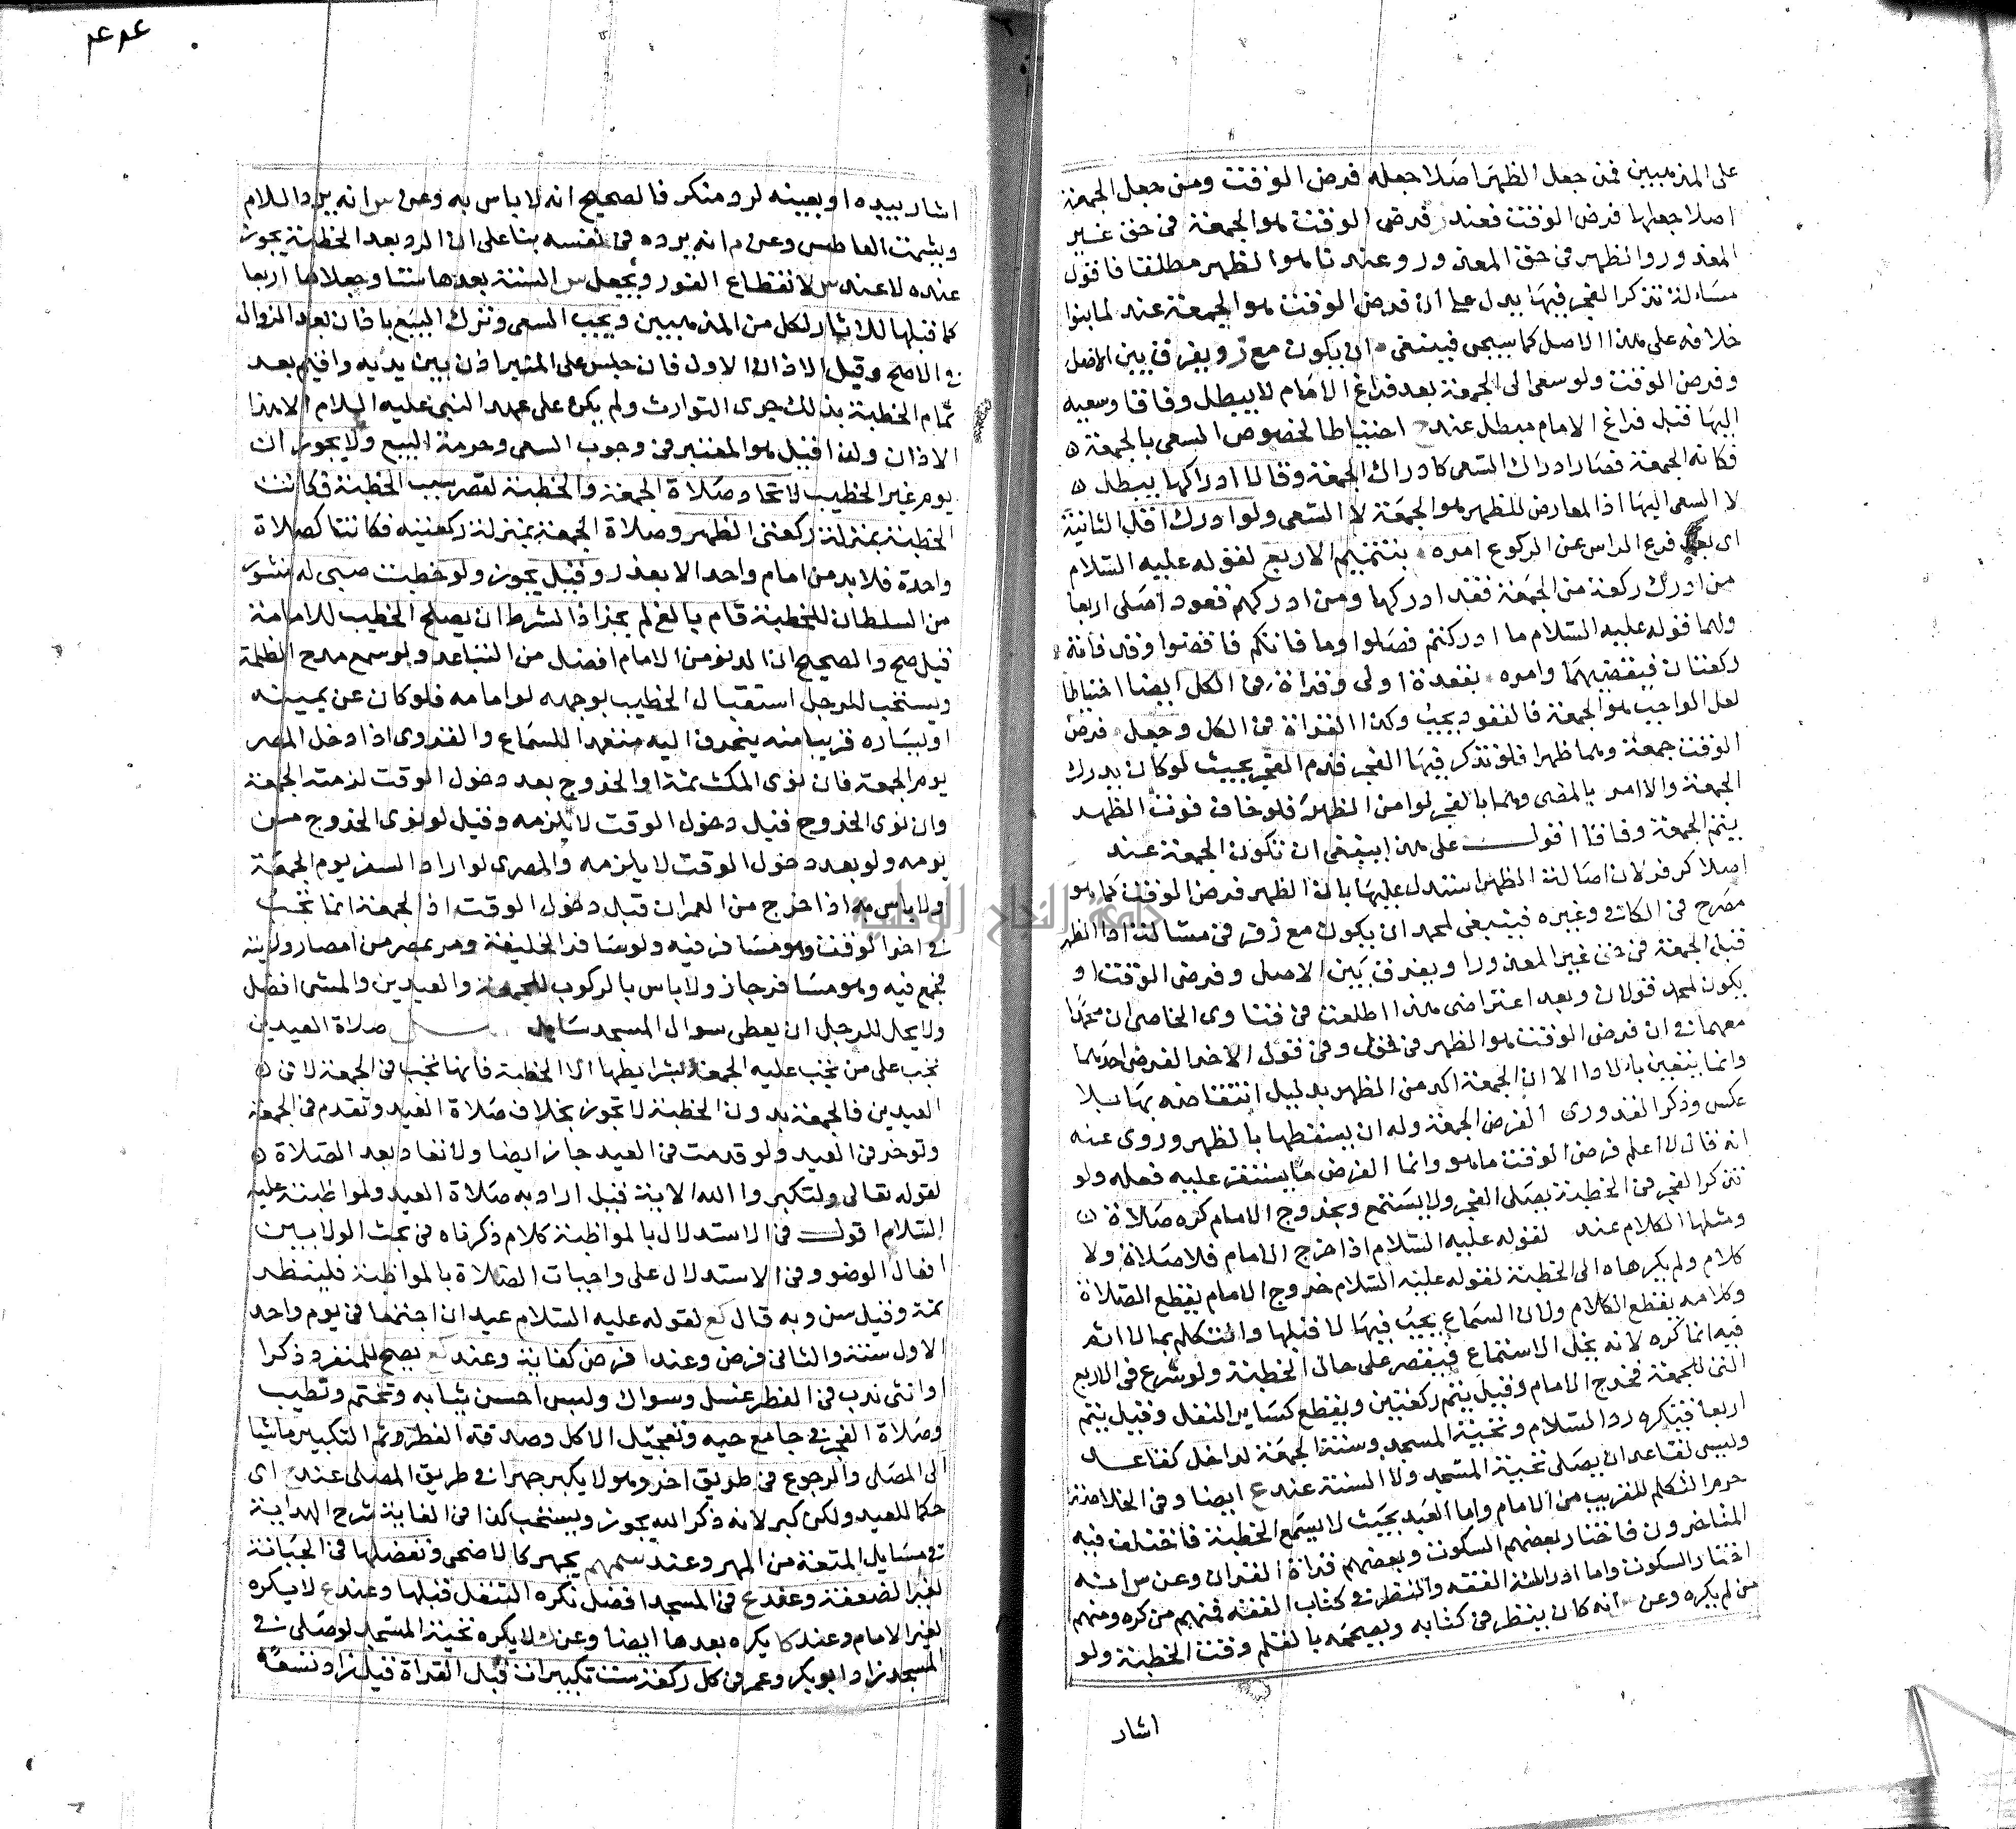 على المذهبين فمن جعل الظهر اصلا جعله فرض الوقت ومن جعل الجمعة
اصلا جعلها فرض الوقت فعند فرض الوقت هو الجمعة في حق غير
المعذور والظهر في حق المعذور وعندنا هو الظهر مطلقا فاقول
مسألة تذكر الفجر فيها يدل على ان فرض الوقت هو الجمعة عند لما بنوا
خلافه على هذا الاصل كما سيجي فينبغي ان يكون مع زويفرق بين الاصل
وفرض الوقت ولو سعى الى الجمعة بعد فراغ الامام لا يبطل وفاقا وسعيه
اليها قبل فراغ الامام مبطل عندح احتياطا لخصوص السعي بالجمعة
فكانه الجمعة فصار ادراك السعي كادراك الجمعة وقالا ادراكها يبطل
لا السعي اليها اذ المعارض للظهر هو الجمعة لا السعي ولو ادرك اقل الثانية
اى بعد فرع الراس عن الركوع امره بتتميم الاربع لقوله عليه السلام
من ادرك ركعة من الجمعة فقد ادركها ومن ادركهم قعودا صلى اربعا
ولهما قوله عليه السلام ما ادركتم فصلوا وما فاتكم فاقضوا وقد فاته
ركعتان فيقضيهما وامره بقعدة اولى وقراة في الكل ايضا احتياطا
لعل الواجب هو الجمعة فالقعود يجب وكذا القراة في الكل وجعل فرض
الوقت جمعة وهما ظهرا فلو تذكر فيها الفجر قدم الفجر بحيث لو كان يدرك
الجمعة والا امر بالمضى وهما بالفجر لو امن الظهر فلو خاف فوت الظهر
يتم الجمعة وفاقا اقول على هذا ينبغي ان تكون الجمعة عند
اصلا كزفر لان اصالة الظهر استدل عليها بان الظهر فرض الوقت كما هو
مصرح في الكافي وغيره فينبغي لمحمد ان يكون مع زفر في مسالة اذا الظهر
قبل الجمعة في حق غير المعذور او يفرق بين الاصل وفرض الوقت او
يكون لمحمد قولان وبعد اعتراضى هذا اطلعت في فتاوى الخاصي ان محمدا
معهما في ان فرض الوقت هو الظهر في قول وفي قول الاخر الفرض احدهما
وانما يتعين باداوا الا ان الجمعة اكد من الظهر بدليل انتقاضه بها بلا
عكس وذكر القدورى الفرض الجمعة وله ان يسقطها بالظهر وروى عنه
انه قال لا اعلم فرض الوقت ما هو وانما الفرض ما يستقر عليه فعله ولو
تذكر الفجر في الخطبة يصلى الفجر ولا يستمع وبخروج الامام كره صلاة
ومثلها الكلام عند لقوله عليه السلام اذا خرج الامام فلا صلاة ولا
كلام ولم يكرهاه الى الخطبة لقوله عليه السلام خروج الامام يقطع الصلاة
وكلامه يقطع الكلام ولان السماع يجب فيها لا قبلها والتكلم بما لا اثم
فيه انما كره لانه يخل الاستماع فيقصر على حال الخطبة ولو شرع في الاربع
التي للجمعة فخرج الامام وقيل يتم ركعتين ويقطع كساير النفل وقيل يتم
اربعا فيكره رد السلام وتحية المسجد وسنة الجمعة لداخل كقاعد
وليس لقاعد ان يصلى تحية المسجد ولا السنة عندع ايضا وفي الخلاصة
حرم التكلم للقريب من الامام واما البعيد بحيث لا يسمع الخطبة فاختلف فيه
المتاخرون فاختار بعضهم السكوت وبعضهم قراة القران وعن س انه
اختار السكوت واما دراسة الفقه والنظر في كتاب الفقه فمنهم من كره ومنهم
من لم يكره وعن انه كان ينظر في كتابه ويصححه بالقلم وقت الخطبة ولو
اشار
اشار بيده او بعينه لرد منكر فالصحيح انه لا باس به وعن س انه يرد السلام
ويشمت العاطس وعن م انه يرده في نفسه بنا على ان الرد بعد الخطبة يجوز
عنده لا عند س لانقطاع الفور ويجعل س السنة بعدها ستا وجعلاها اربعا
كما قبلها للاثار لكل من المذهبين ويجب السعي وترك البيع باذان بعد الزوال
في الاصح وقيل الاذان الاول فان جلس على المنبر اذن بين يديه واقيم بعد
تمام الخطبة بذلك جرى التوارث ولم يكن على عهد النبي عليه السلام الا هذا
الاذان ولذا قيل هو المعتبر في وجوب السعي وحرمة البيع ولا يجوز ان
يوم غير الخطيب لاتحاد صلاة الجمعة والخطبة لقصر سبب الخطبة فكانت
الخطبة بمنزلة ركعتى الظهر وصلاة الجمعة بمنزلة ركعتيه فكانتا كصلاة
واحدة فلابد من امام واحد الا بعذر وقيل يجوز ولو خطب صبى له منشور
من السلطان للخطبة قام بالغ لم يجز اذ الشرط ان يصلح الخطيب للامامة
قيل صح والصحيح ان الدنو من الامام افضل من التباعد ولو سمع مدح الظلمة
ويستحب للرجل استقبال الخطيب بوجهه لو امامه فلو كان عن يمينه
او يساره قريبا منه ينحرف اليه متعدا للسماع والقروى اذا دخل المصر
يوم الجمعة فان نوى المكث ثمة او الخروج بعد دخول الوقت لزمته الجمعة
وان نوى الخروج قبل دخول الوقت لا يلزمه وقيل لو نوى الخروج من
يومه ولو بعد دخول الوقت لا يلزمه والمصرى لو اراد السفر يوم الجمعة
ولا باس به اذا خرج من العمران قبل دخول الوقت اذ الجمعة انما تجب
في اخر الوقت وهو مسافر فيه ولو سافر الخليفة ومر بمصر من امصار ولايته
فجمع فيه وهو مسافر جاز ولا باس بالركوب للجمعة والعيدين والمشى افضل
ولا يحل للرجل ان يعطى سوال المسجد صلاة العيدين
تجب على من تجب عليه الجمعة بشرايطها الا الخطبة فانها تجب في الجمعة لا في
العيدين فالجمعة بدون الخطبة لا تجوز بخلاف صلاة العيد وتقدم في الجمعة
وتوخر في العيد ولو قدمت في العيد جاز ايضا ولا تعاد بعد الصلاة
لقوله تعالى ولتكبروا الله الاية قيل اراد به صلاة العيد ولمواظبته عليه
السلام اقول في الاستدلال بالمواظبة كلام ذكرناه في بحث الولا بين
افعال الوضو وفي الاستدلال على واجبات الصلاة بالمواظبة فلينظر
ثمة وقيل سن وبه قال كع لقوله عليه السلام عيدان اجتمعا في يوم واحد
الاول سنة والثاني فرض وعندا فرض كفاية وعند كع يصح للمنفرد ذكرا
او انثى ندب في الفطر غسل وسواك ولبس احسن ثيابه وتختم وتطيب
وصلاة الفجر في جامع حيه وتعجيل الاكل وصدقة الفطر وثم التكبير ماشيا
الى المصلى والرجوع في طريق اخر وهو لا يكبر جهرا في طريق المصلى عندح اى
حكما للعيد ولكن كبر لانه ذكر الله يجوز ويستحب كذا في الغاية شرح الهداية
في مسايل المتعة من المهر وعند سمهم يجهر كالاضحى وتفضلها في الجبانة
لغير الضعفة وعقدع في المسجد افضل نكره التنفل قبلها وعندع لا يكره
لغير الامام وعند كا يكره بعدها ايضا وعن ك لا يكره تحية المسجد لو صلى في
المسجد زاد ابو بكر وعمر في كل ركعة ست تكبيرات قبل القراة قيل زاد تسعة